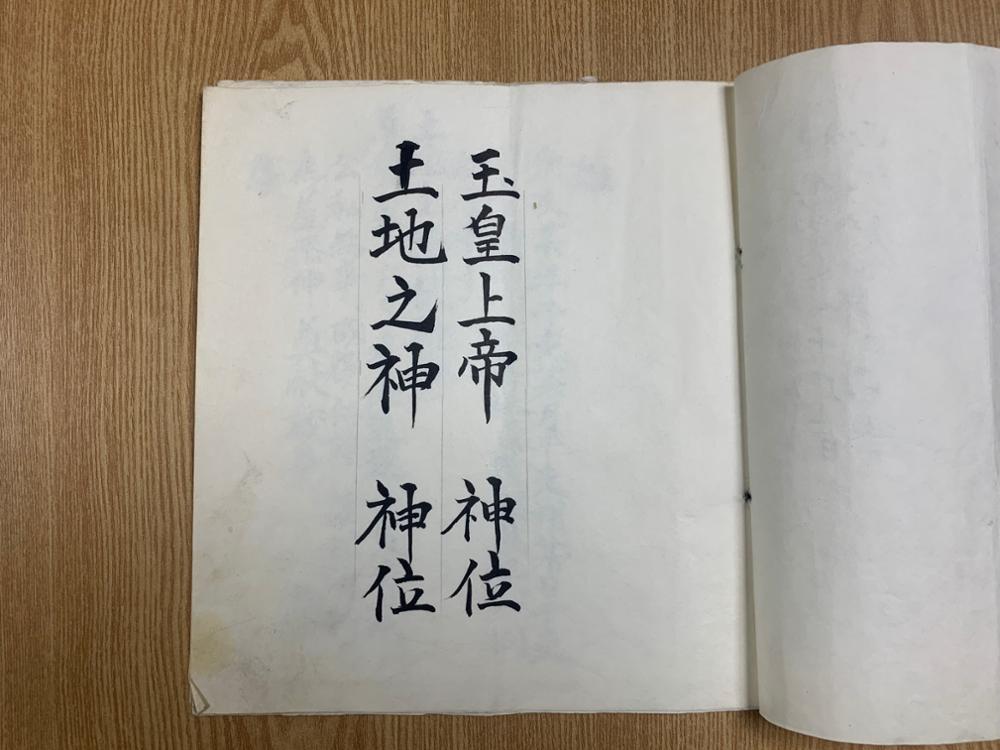 玉皇上帝 神位
土地之神 神位